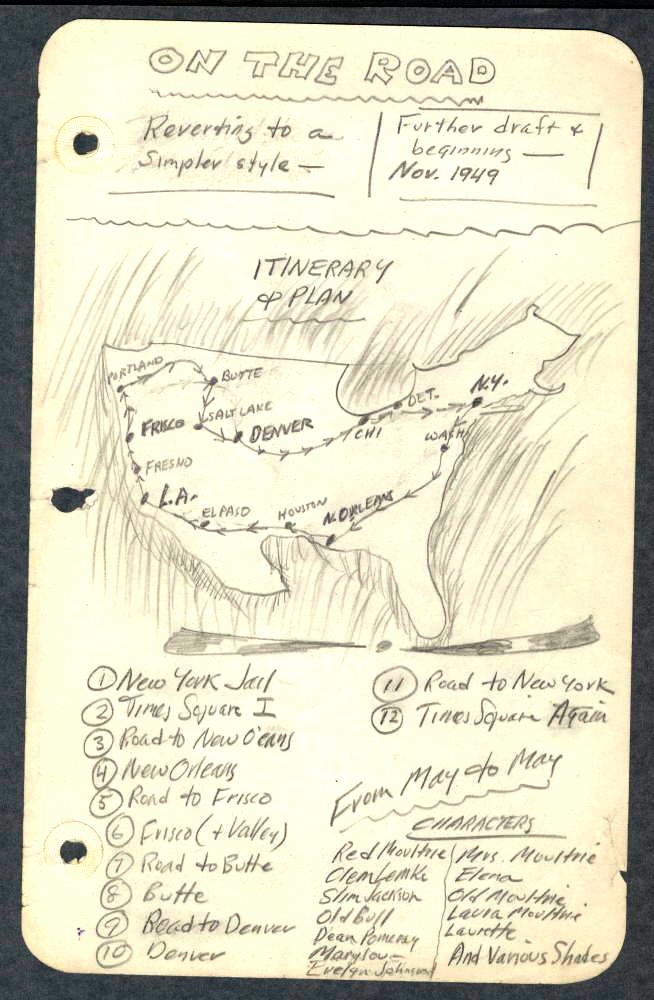 ON THE ROAD
Reverting to a
Simpler style —
Further draft &
beginning —
Nov. 1949
ITINERARY
& PLAN
PORTLAND
BUTTE
N.Y.
DET.
SALT LAKE
FRISCO
DENVER
CHI
WASH.
FRESNO
L.A.
EL PASO
HOUSTON
N. ORLEANS
① New York Jail
② Times Square I
③ Road to New O'eans
④ New Orleans
⑤ Road to Frisco
⑥ Frisco (+ Valley)
⑦ Road to Butte
⑧ Butte
⑨ Road to Denver
⑩ Denver
⑪ Road to New York
⑫ Times Square Again
From May to May
CHARACTERS
Red Moultrie
Clem Lemke
Slim Jackson
Old Bull
Dean Pomeray
Marylou —
Evelyn Johnson
Mrs. Moultrie
Elena
Old Moultrie
Laura Moultrie
Laurette
And Various Shades